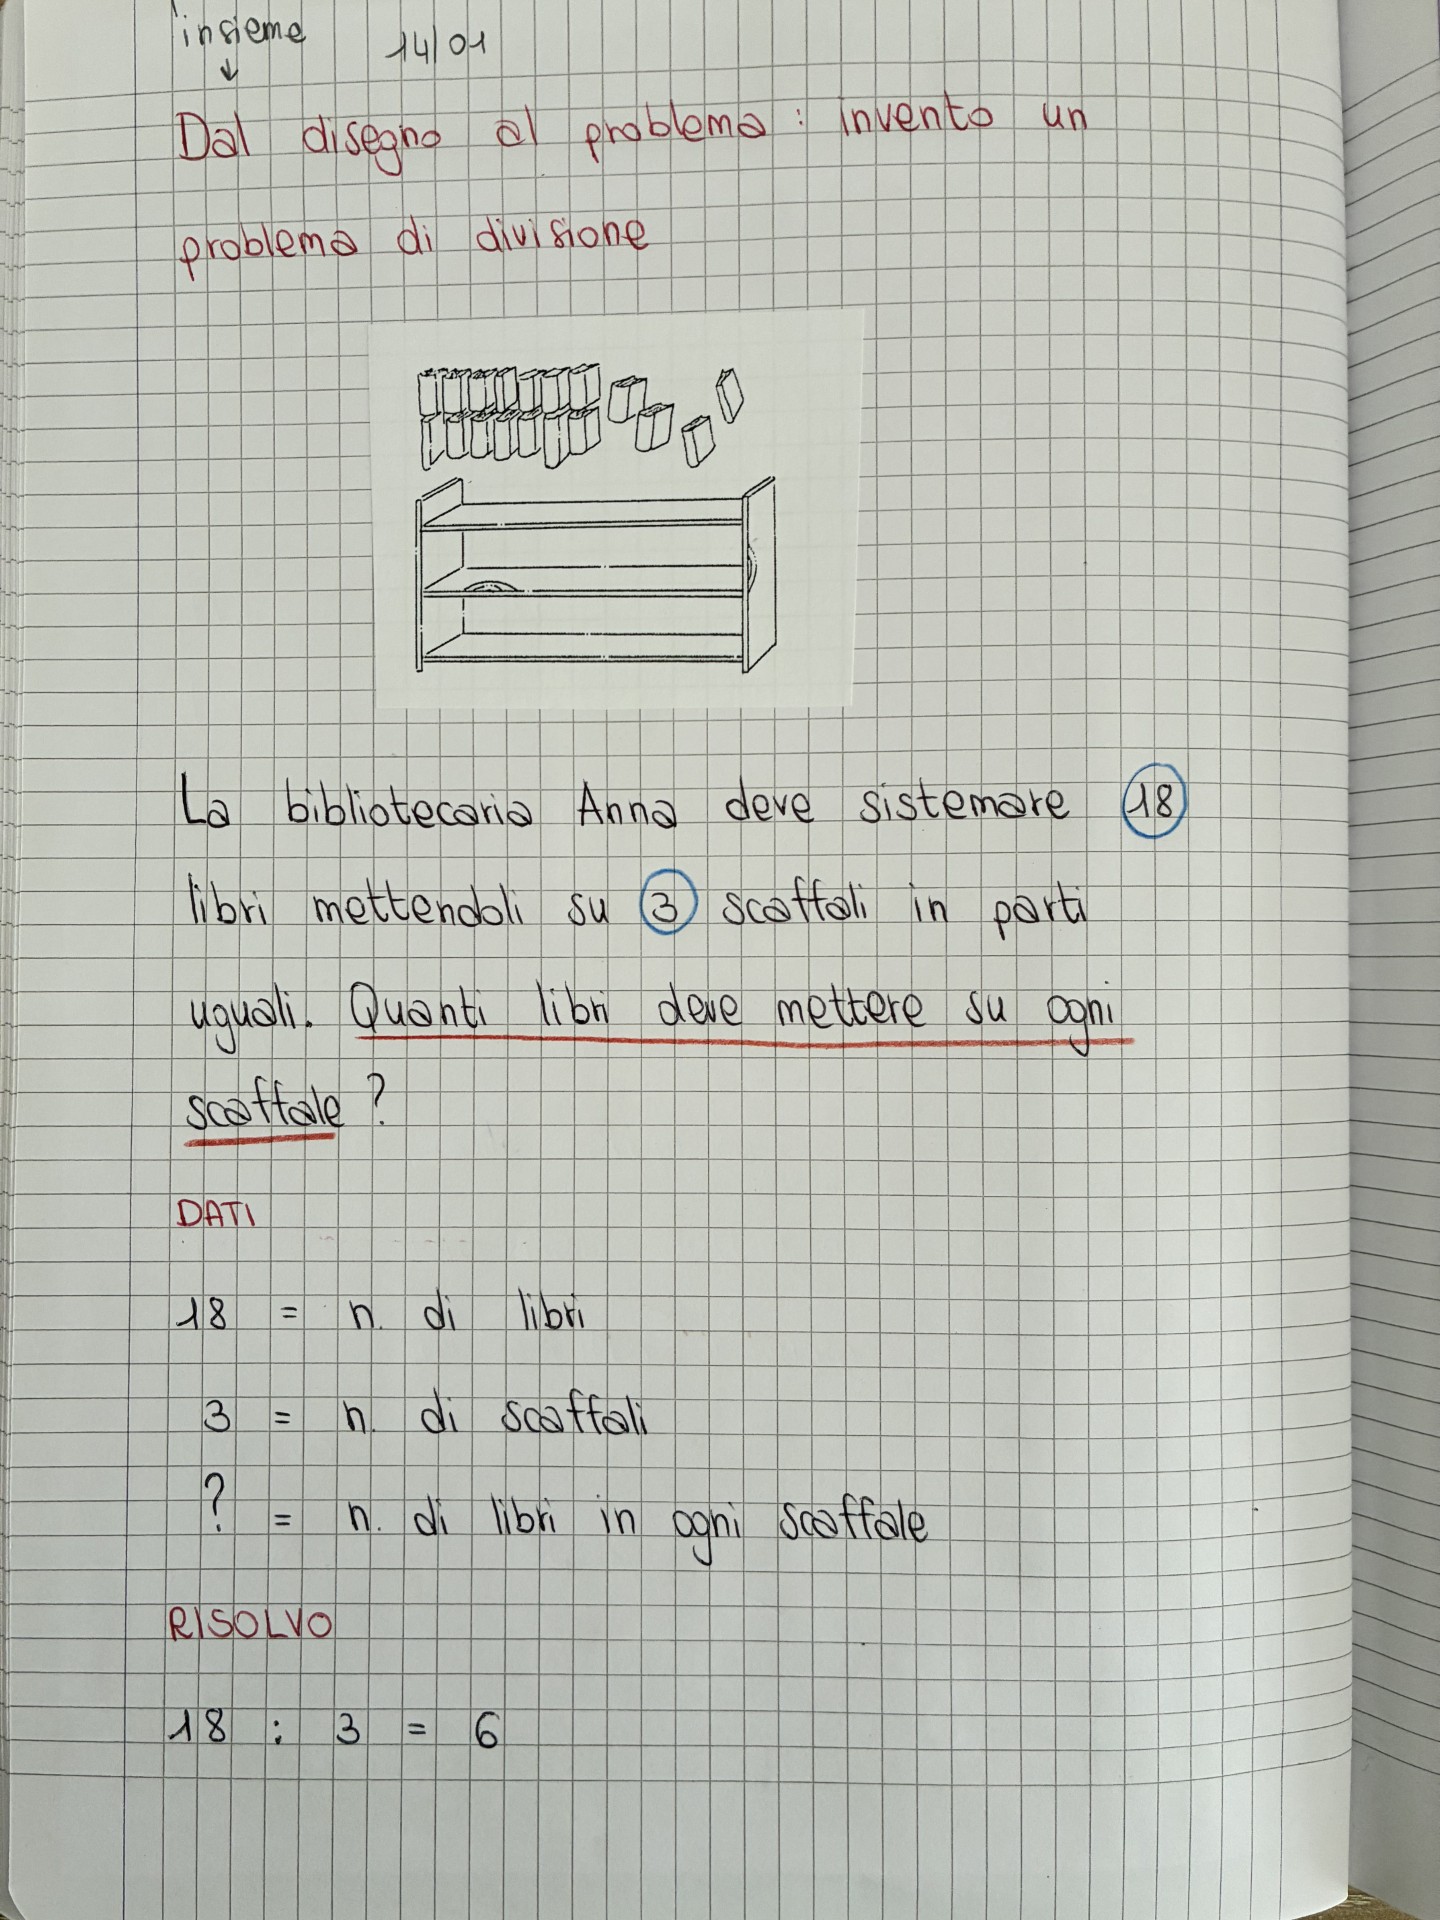 insieme 14/01
↓
Dal disegno al problema: invento un
problema di divisione
La bibliotecaria Anna deve sistemare 18
libri mettendoli su 3 scaffali in parti
uguali. Quanti libri deve mettere su ogni
scaffale?
DATI
18 = n. di libri
3 = n. di scaffali
? = n. di libri in ogni scaffale
RISOLVO
18 : 3 = 6